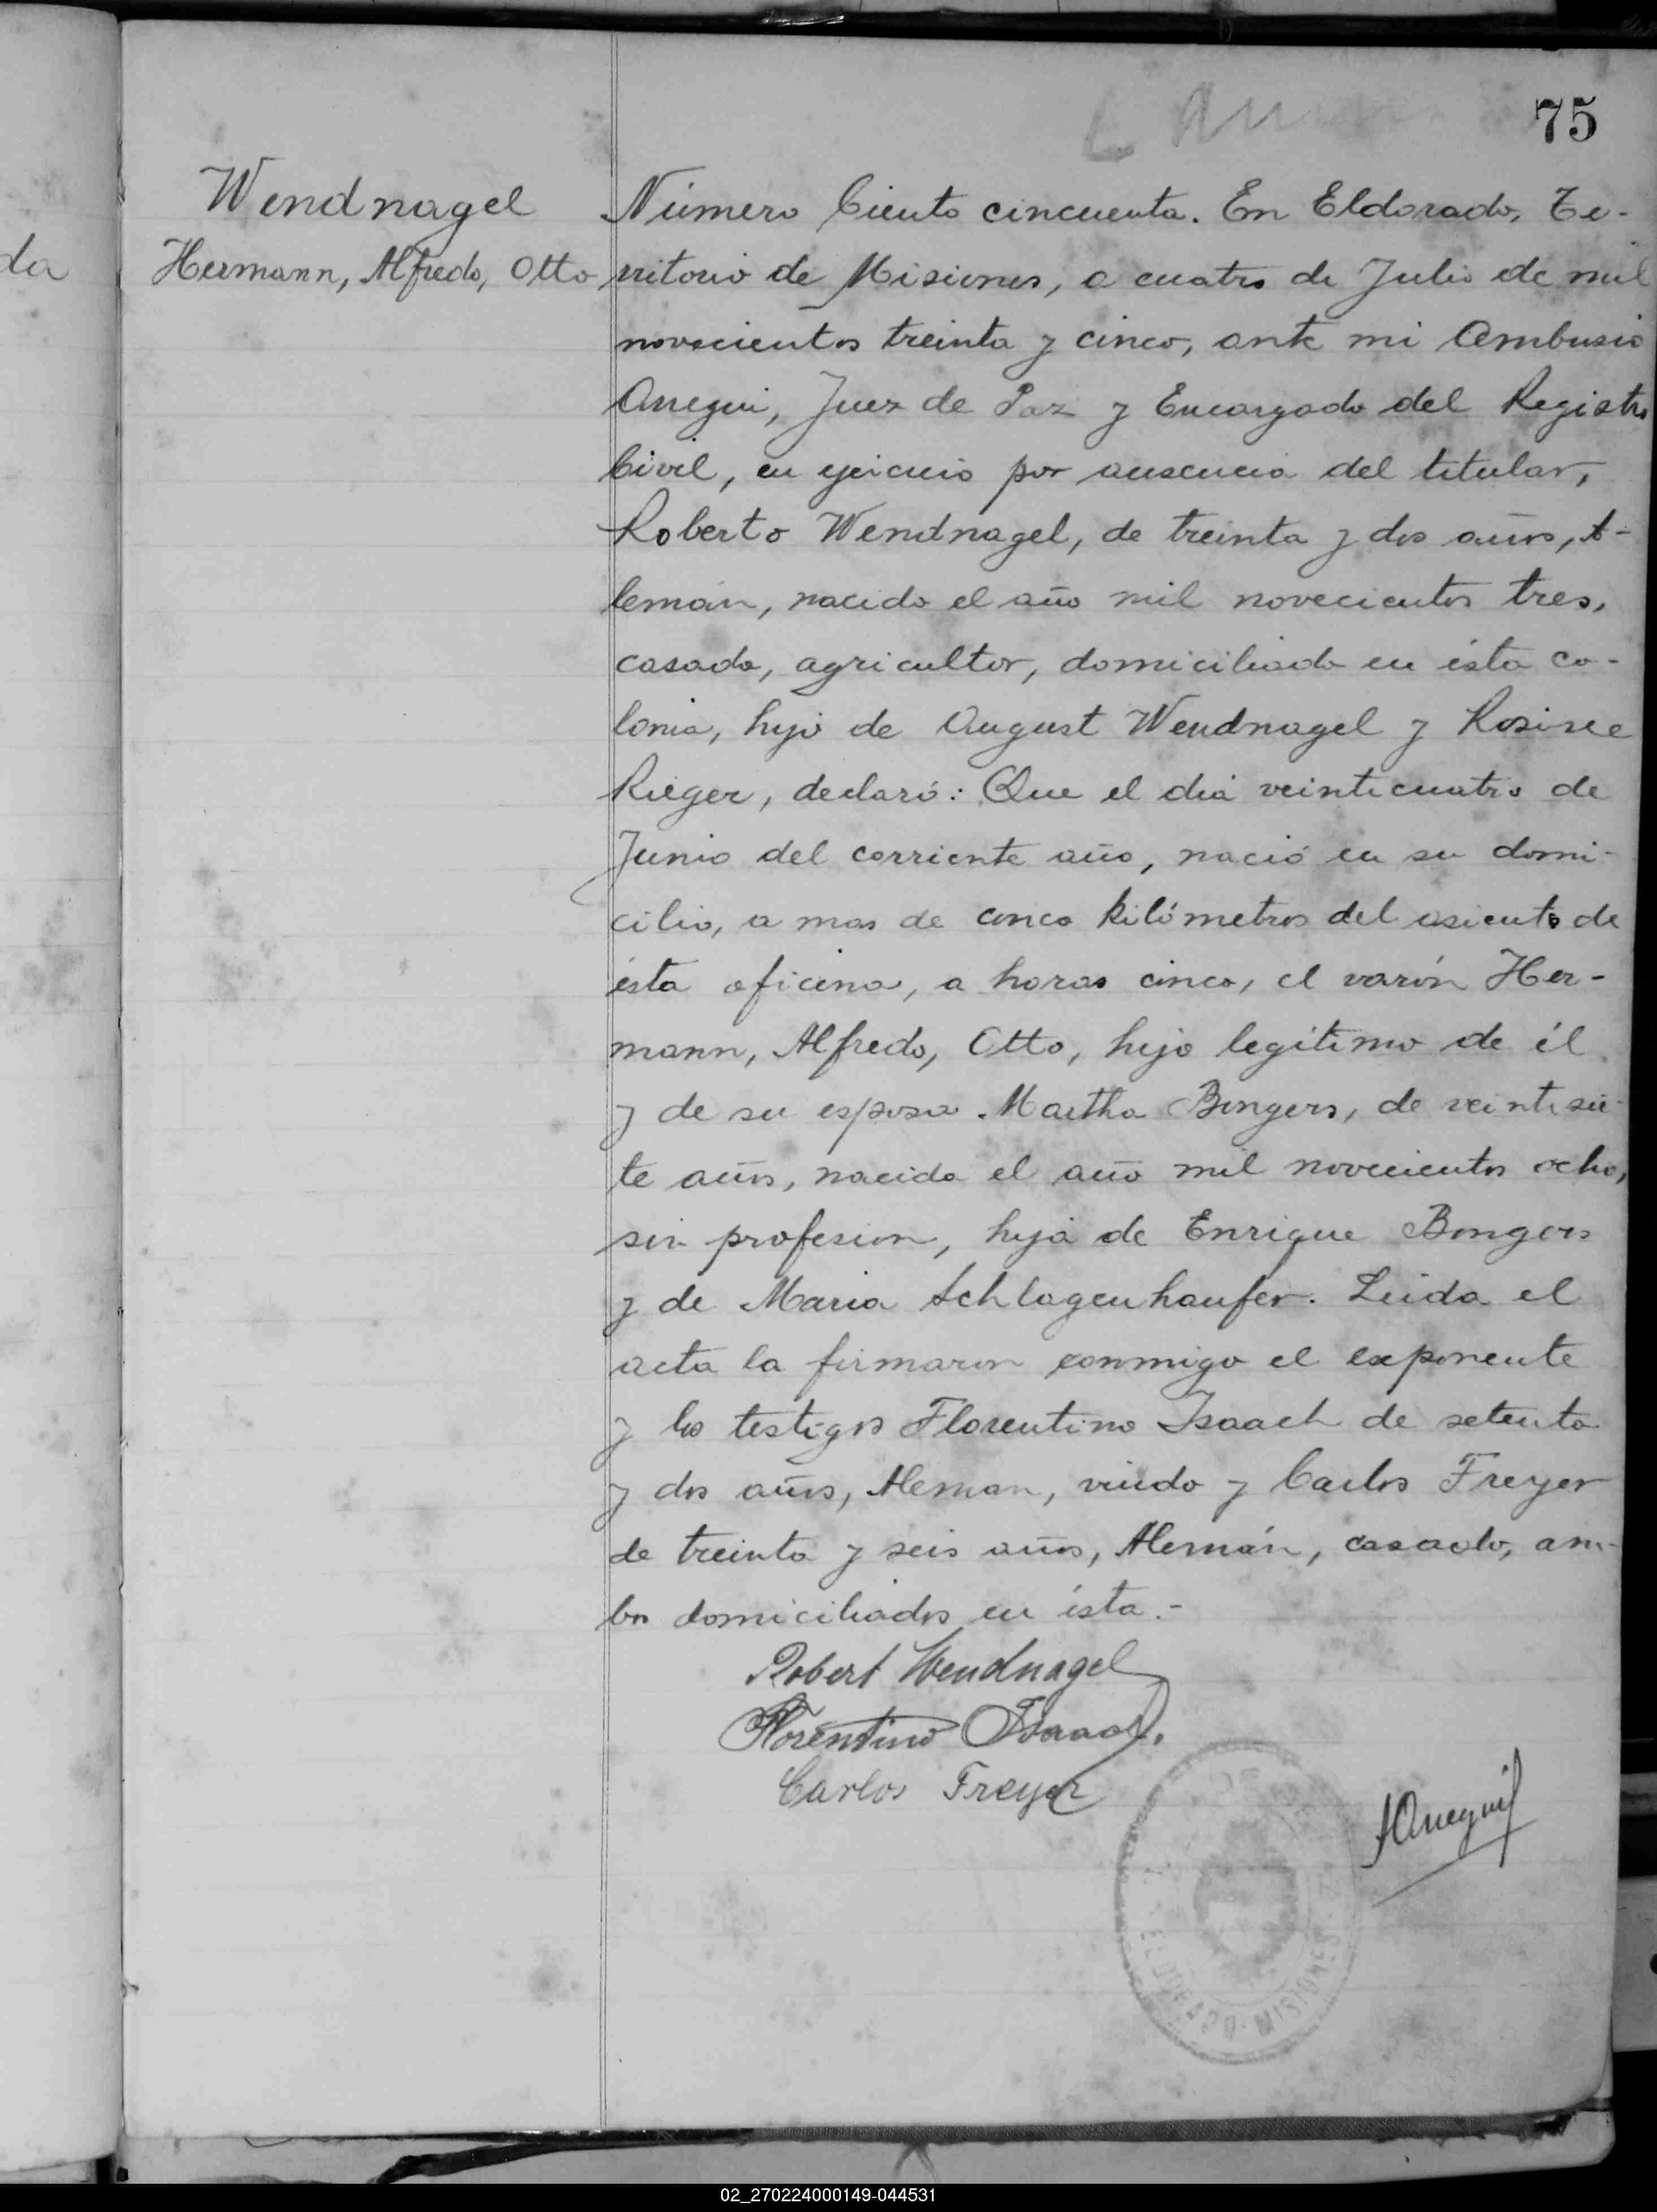 75
Wendnagel
Hermann, Alfredo, Otto
da
Número Ciento cincuenta. En Eldorado, Te-
rritorio de Misiones, a cuatro de Julio de mil
novecientos treinta y cinco, ante mi
Juez de Paz y Encargado del Registro
Civil, en ejercicio por ausencia del titular,
Roberto Wendnagel, de treinta y dos años, A-
lemán, nacido el año mil novecientos tres,
casado, agricultor, domiciliado en ésta co-
lonia, hijo de August Wendnagel y
Rieger, declaró: Que el día veinticuatro de
Junio del corriente año, nació en su domi-
cilio, a mas de cinco kilómetros del asiento de
ésta oficina, a horas cinco, el varón Her-
mann, Alfredo, Otto, hijo legítimo de él
y de su esposa Martha Bongers, de veintisie-
te años, nacida el año mil novecientos ocho,
sin profesion, hija de Enrique Bongers
y de Maria Schlagenhaufer. Leida el
acta la firmaron conmigo el exponente
y los testigos Florentino Isaach de setenta
y dos años, Aleman, viudo y Carlos Freyer
de treinta y seis años, Alemán, casado, am-
bos domiciliados en ésta.-
Robert Wendnagel
Florentino Isaach.
Carlos Freyer
ELDORADO - MISIONES
02_270224000149-044531